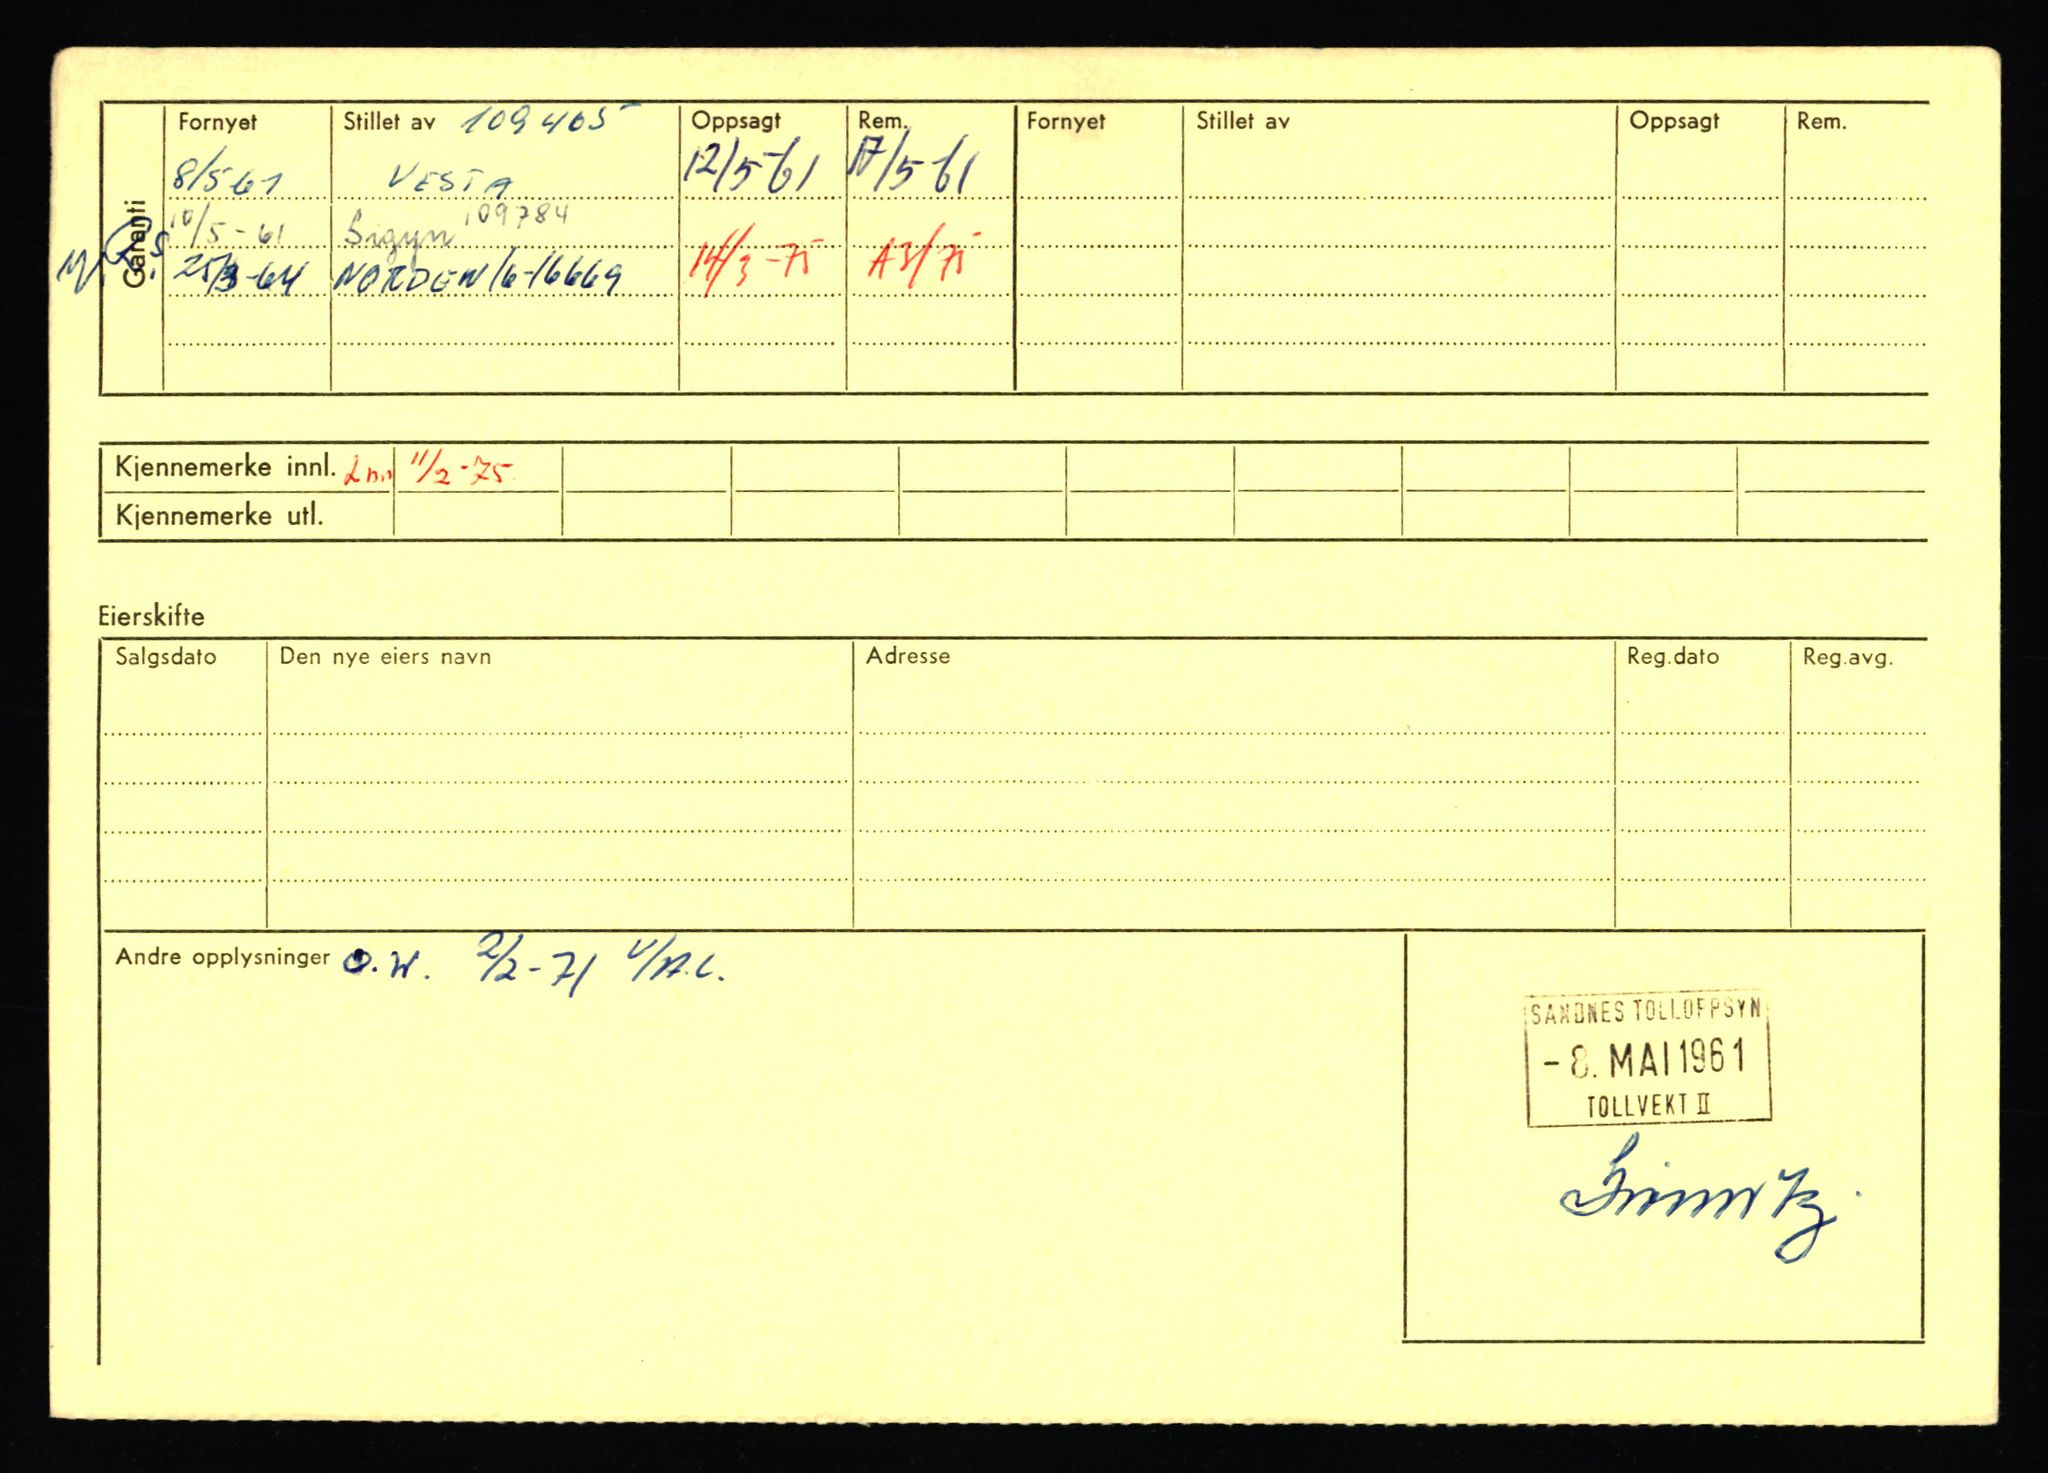 Garanti
Fornyet Stillet av 109405 Oppsagt Rem. Fornyet Stillet av Oppsagt Rem.
8/5 61 VESTA 12/5-61 17/5-61
10/5-61 Sigyn 109784
25/3-64 NORDEN 16-16669 14/3-75 A3/75
Kjennemerke innl. 11/2-75
Kjennemerke utl.
Eierskifte
Salgsdato Den nye eiers navn Adresse Reg.dato Reg.avg.
Andre opplysninger O.W. 2/2-71 V/A.C.
SANDNES TOLLOPPSYN
-8. MAI 1961
TOLLVEKT II